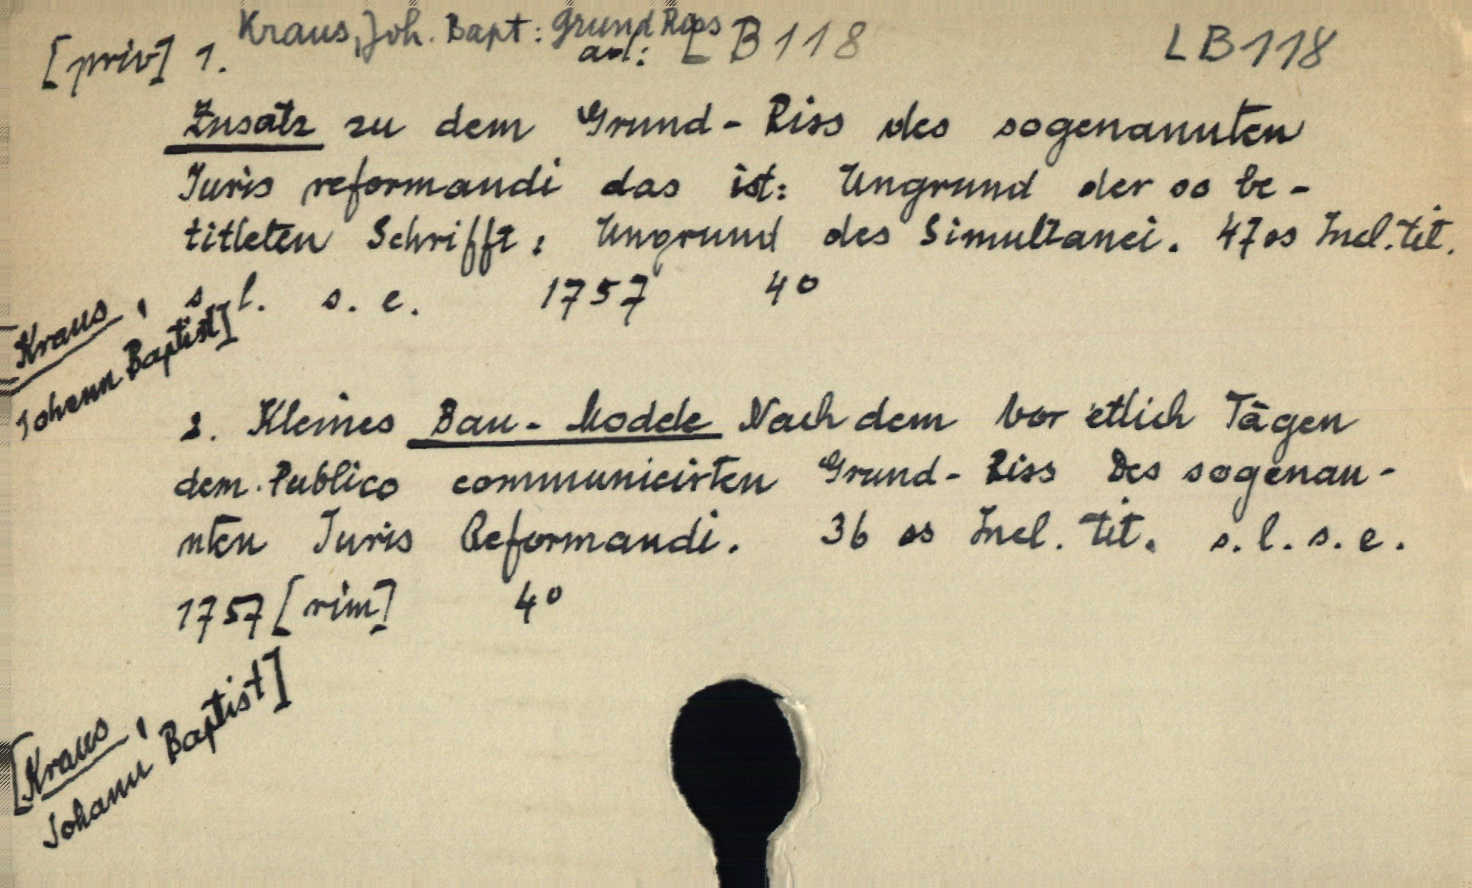 Kraus, Joh. Bapt: Grund Riss
[priv] 1. an: LB118 LB118
Zusatz zu dem Grund-Riss des sogenannten
Juris reformandi das ist: Ungrund der so be-
titleten Schrifft: Ungrund des Simultanei. 47 os Incl. tit.
s. l. s. e. 1757 4°
[Kraus,
Johann Baptist]
2. Kleines Bau-Modele Nach dem vor etlich Tägen
dem Publico communicirten Grund-Riss Des sogenan-
nten Juris Reformandi. 36 os Incl. tit. s. l. s. e.
1757 [rim] 4°
[Kraus,
Johann Baptist]